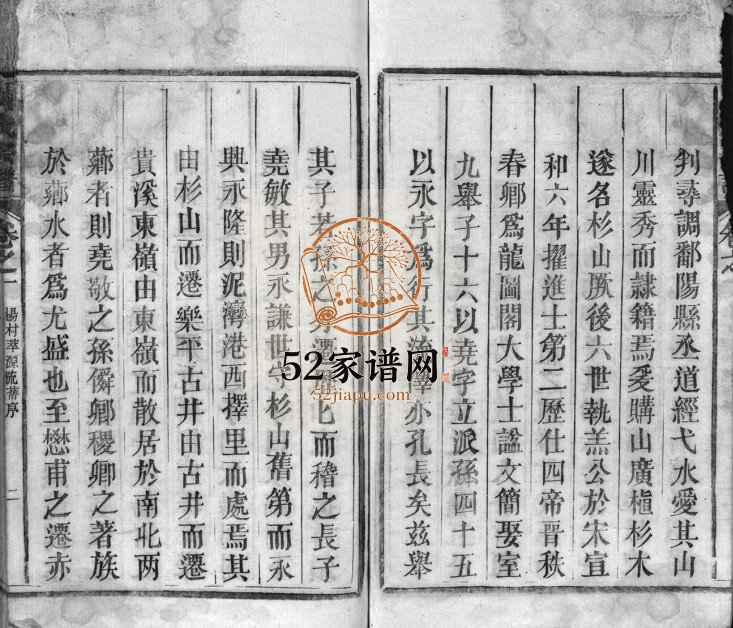 判尋調鄱陽縣丞道經弋水愛其山
川靈秀而隷籍焉爰購山廣植杉木
遂名杉山厥後六世執羔公於宋宣
和六年擢進士第二歷仕四帝晉秩
春卿爲龍圖閣大學士諡文簡娶室
九舉子十六以堯字立派孫四十五
以永字爲行其流澤亦孔長矣茲舉
其子若孫之 而稽之長子
堯敏其男永謙世守杉山舊第而永
興永隆則泥灣港西擇里而處焉其
由杉山而遷樂平古井由古井而遷
貴溪東嶺由東嶺而散居於南北兩
薌者則堯敬之孫僢卿稷卿之著族
於薌水者爲尤盛也至懋甫之遷赤
卷之一
楊村萃源流舊序
二
52家谱网
52jiapu.com